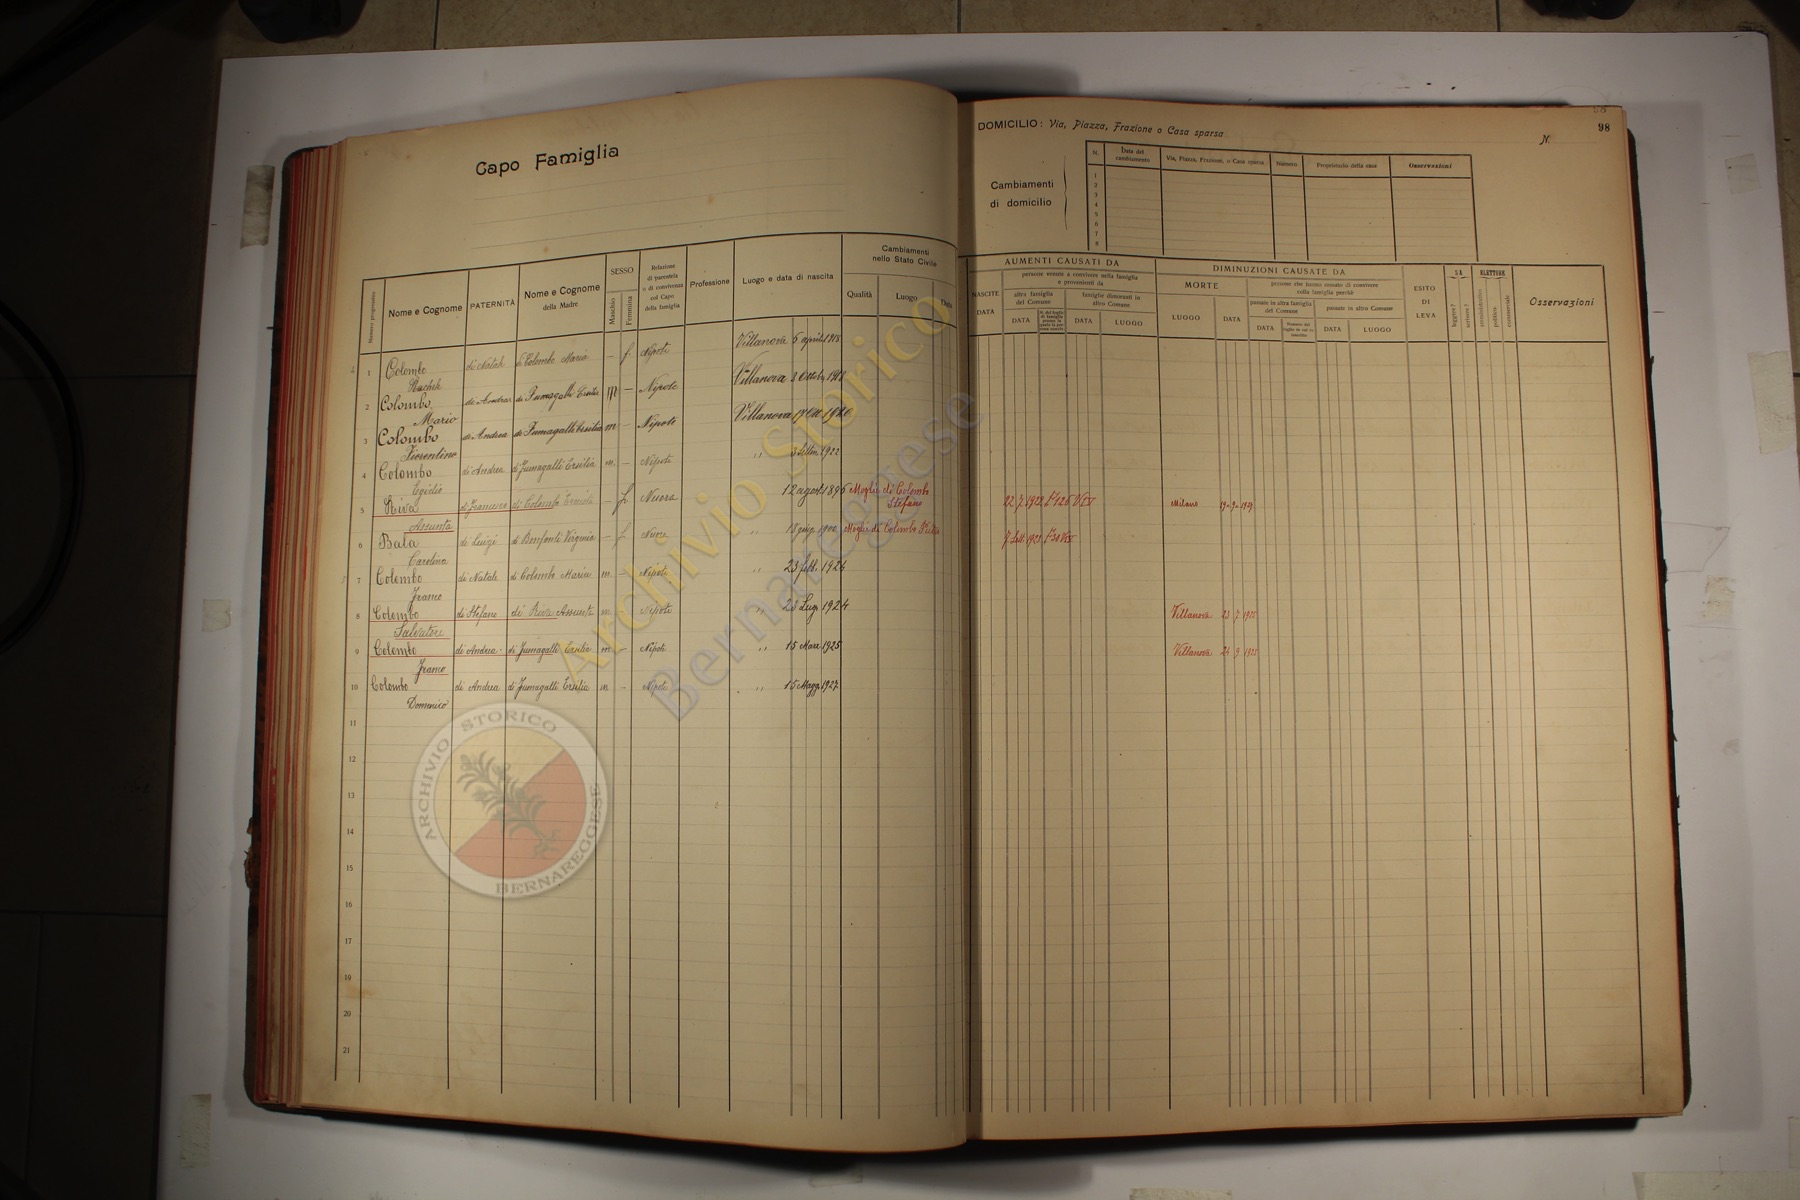 Capo Famiglia
Numero progressivo
Nome e Cognome
PATERNITÀ
Nome e Cognome
della Madre
SESSO
Maschio
Femmina
Relazione
di parentela
o di convivenza
col Capo
della famiglia
Professione
Luogo e data di nascita
Cambiamenti
nello Stato Civile
Qualità
Luogo
Data
1 Colombo di Natale di Colombo Maria - f. Nipote Villanova 5 aprile 1918
2 Colombo di Andrea di Fumagalli Ersilia m - Nipote Villanova 3 Ottobre
Mario
3 Colombo di Andrea di Fumagalli Ersilia m - Nipote Villanova
Fiorentino
4 Colombo di Andrea di Fumagalli Ersilia m. - Nipote " 3 Settem. 1922
Egidio
5 Riva di Francesco di Colombo - f Nuora 12 agosto 1896 Moglie di Colombo
Stefano
Assunta
6 Bala di Luigi di Bonfanti Virginia - f Nuora " 18 giug. 1900 Moglie di Colombo
Carolina
7 Colombo di Natale di Colombo Maria m - Nipote " 23 febb. 1926
Franco
8 Colombo di Stefano di Riva Assunta m - Nipote " 23 Lug. 1924
Salvatore
9 Colombo di Andrea di Fumagalli Ersilia m - Nipote " 15 Mar. 1925
Franco
10 Colombo di Andrea di Fumagalli Ersilia m - Nipote " 15 Magg. 1927
Domenico
11
12
13
14
15
16
17
18
19
20
21
98
DOMICILIO: Via, Piazza, Frazione o Casa sparsa
N.
Cambiamenti
di domicilio
N.
Data del
cambiamento
Via, Piazza, Frazione, o Casa sparsa
Numero
Proprietario della casa
Osservazioni
1
2
3
4
5
6
7
8
AUMENTI CAUSATI DA
NASCITE
DATA
persone venute a convivere nella famiglia
e provenienti da
altra famiglia
del Comune
DATA
famiglie dimoranti in
altro Comune
DATA
LUOGO
DIMINUZIONI CAUSATE DA
MORTE
LUOGO
DATA
persone che hanno cessato di convivere
colla famiglia perchè
passate in altra famiglia
del Comune
DATA
passate in altro Comune
DATA
LUOGO
ESITO
DI
LEVA
SA
leggere?
scrivere?
ELETTORE
amministrativo
politico
commerciale
Osservazioni
Milano 19-9-1929
Villanova 23 7 1925
Villanova 24 9 1925
Archivio Storico
Bernareggese
ARCHIVIO STORICO
BERNAREGGESE